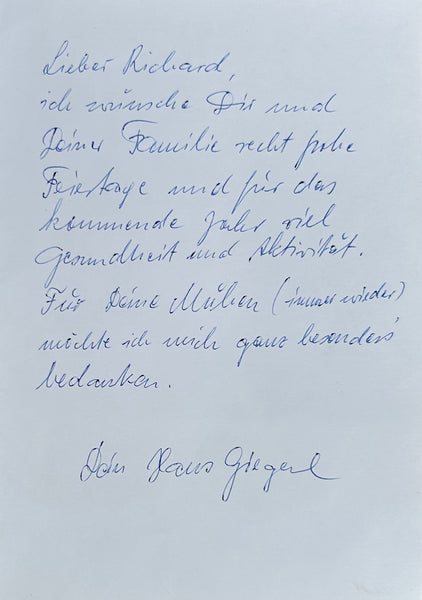 Lieber Richard,
ich wünsche Dir und
Deiner Familie recht frohe
Feiertage und für das
kommende Jahr viel
Gesundheit und Aktivität.
Für Deine Mühen (immer wieder)
möchte ich mich ganz besonders
bedanken.
Dein Hans Giegerl